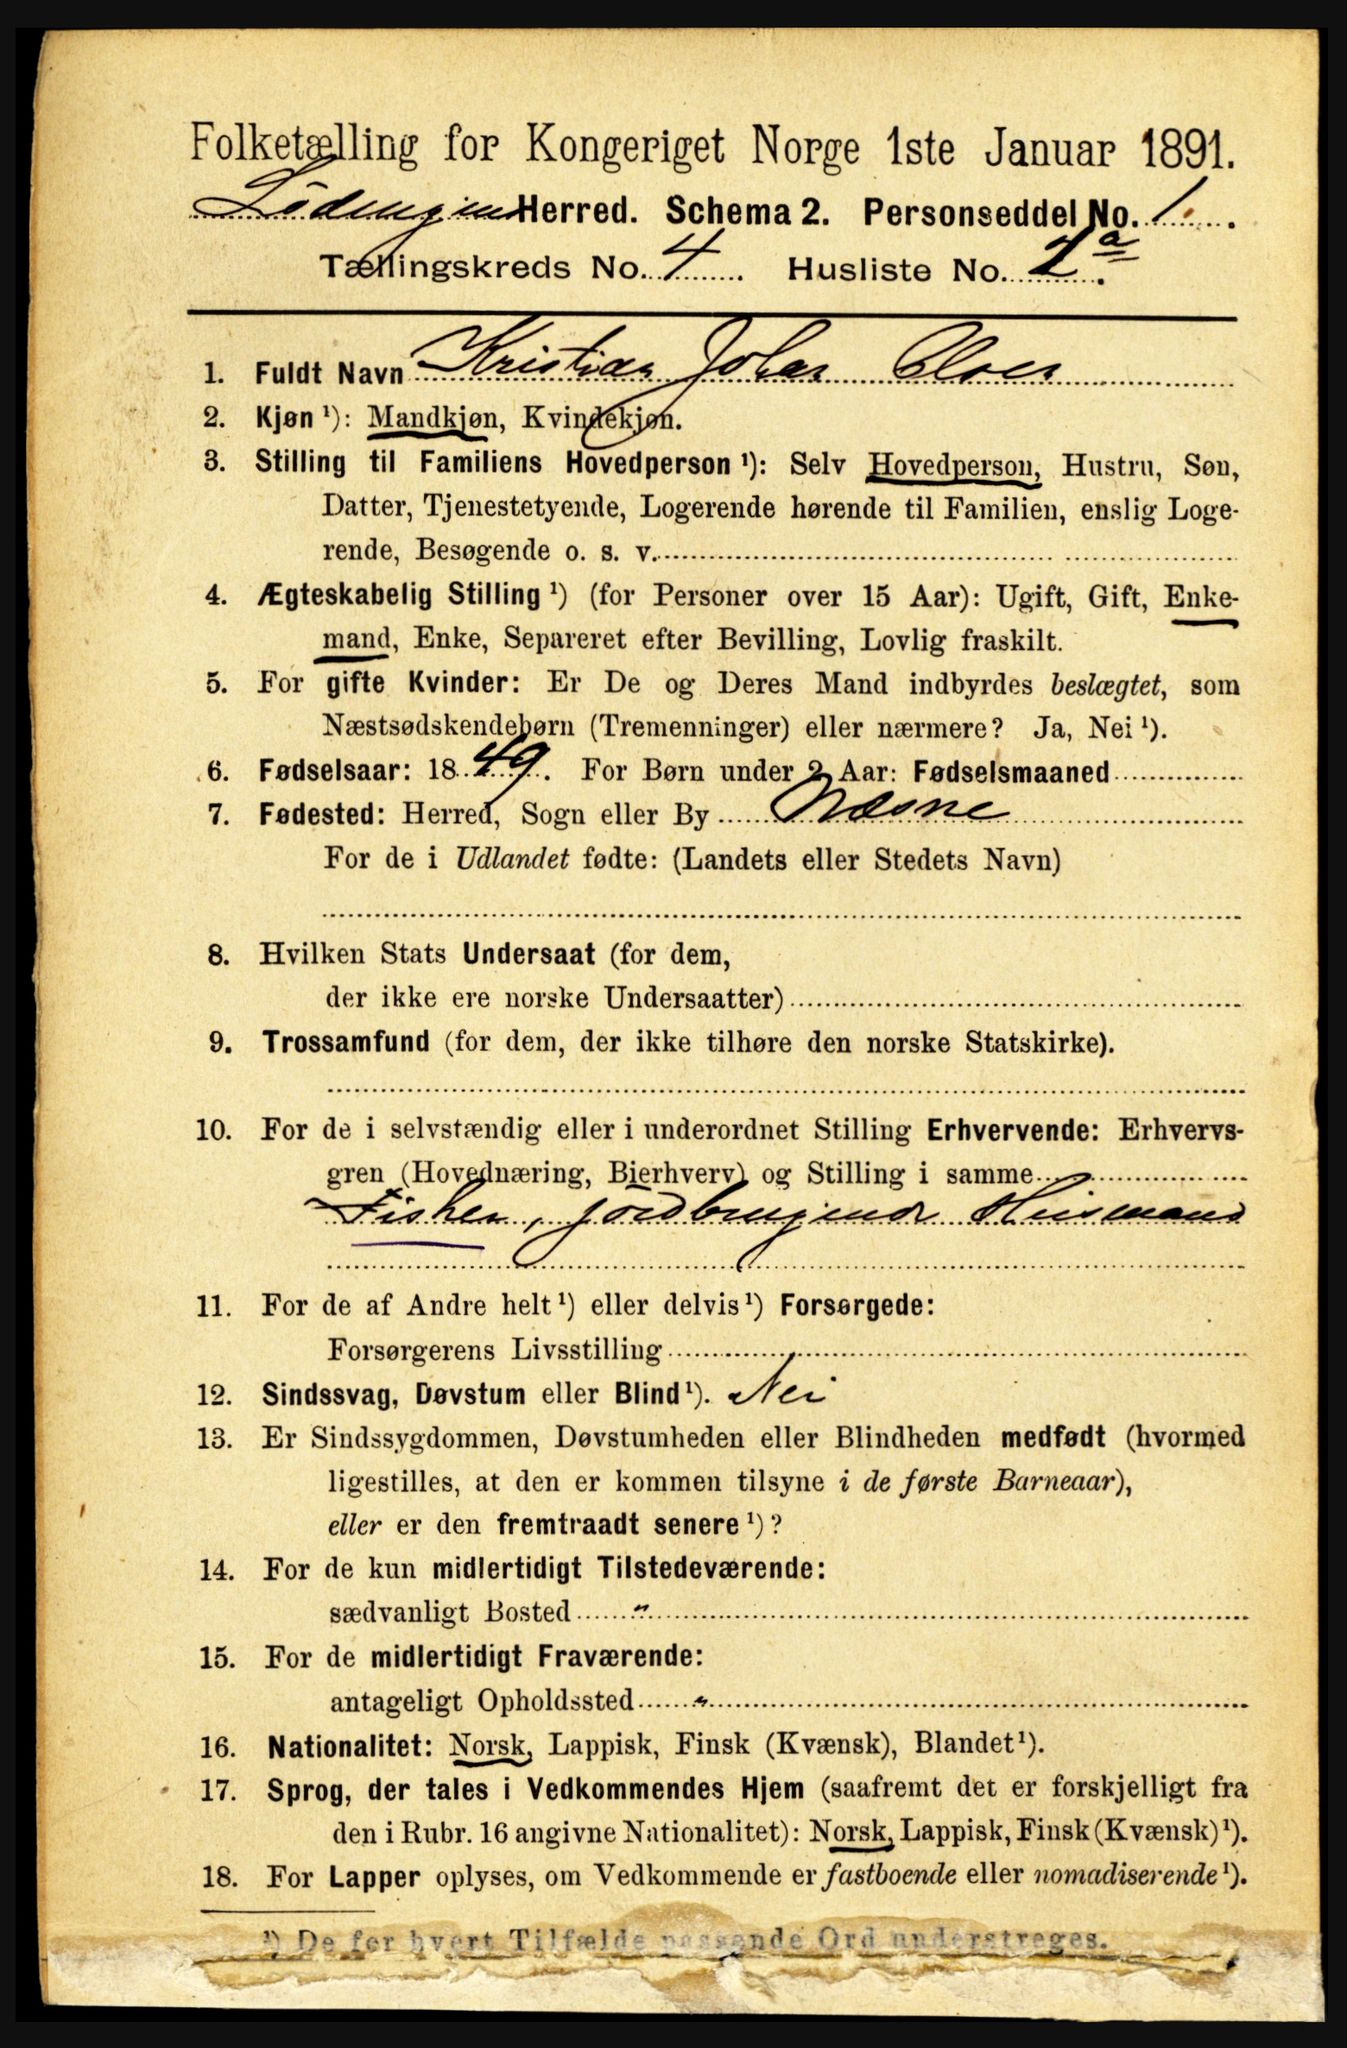 Folketælling for Kongeriget Norge 1ste Januar 1891.
Lødingen Herred. Schema 2. Personseddel No. 1.
Tællingskreds No. 4. Husliste No. 2a.
1. Fuldt Navn Kristian Johan Olsen
2. Kjøn ¹): Mandkjøn, Kvindekjøn.
3. Stilling til Familiens Hovedperson ¹): Selv Hovedperson, Hustru, Søn,
Datter, Tjenestetyende, Logerende hørende til Familien, enslig Loge-
rende, Besøgende o. s. v.
4. Ægteskabelig Stilling ¹) (for Personer over 15 Aar): Ugift, Gift, Enke-
mand, Enke, Separeret efter Bevilling, Lovlig fraskilt.
5. For gifte Kvinder: Er De og Deres Mand indbyrdes beslægtet, som
Næstsødskendebørn (Tremenninger) eller nærmere? Ja, Nei ¹).
6. Fødselsaar: 1849. For Børn under 2 Aar: Fødselsmaaned
7. Fødested: Herred, Sogn eller By Næsne
For de i Udlandet fødte: (Landets eller Stedets Navn)
8. Hvilken Stats Undersaat (for dem,
der ikke ere norske Undersaatter)
9. Trossamfund (for dem, der ikke tilhøre den norske Statskirke).
10. For de i selvstændig eller i underordnet Stilling Erhvervende: Erhvervs-
gren (Hovednæring, Bierhverv) og Stilling i samme
Fisker, jordbrugende Husmand
11. For de af Andre helt ¹) eller delvis ¹) Forsørgede:
Forsørgerens Livsstilling
12. Sindssvag, Døvstum eller Blind ¹). Nei
13. Er Sindssygdommen, Døvstumheden eller Blindheden medfødt (hvormed
ligestilles, at den er kommen tilsyne i de første Barneaar),
eller er den fremtraadt senere ¹)?
14. For de kun midlertidigt Tilstedeværende:
sædvanligt Bosted "
15. For de midlertidigt Fraværende:
antageligt Opholdssted "
16. Nationalitet: Norsk, Lappisk, Finsk (Kvænsk), Blandet ¹).
17. Sprog, der tales i Vedkommendes Hjem (saafremt det er forskjelligt fra
den i Rubr. 16 angivne Nationalitet): Norsk, Lappisk, Finsk (Kvænsk) ¹).
18. For Lapper oplyses, om Vedkommende er fastboende eller nomadiserende ¹).
¹) De for hvert Tilfælde passende Ord understreges.